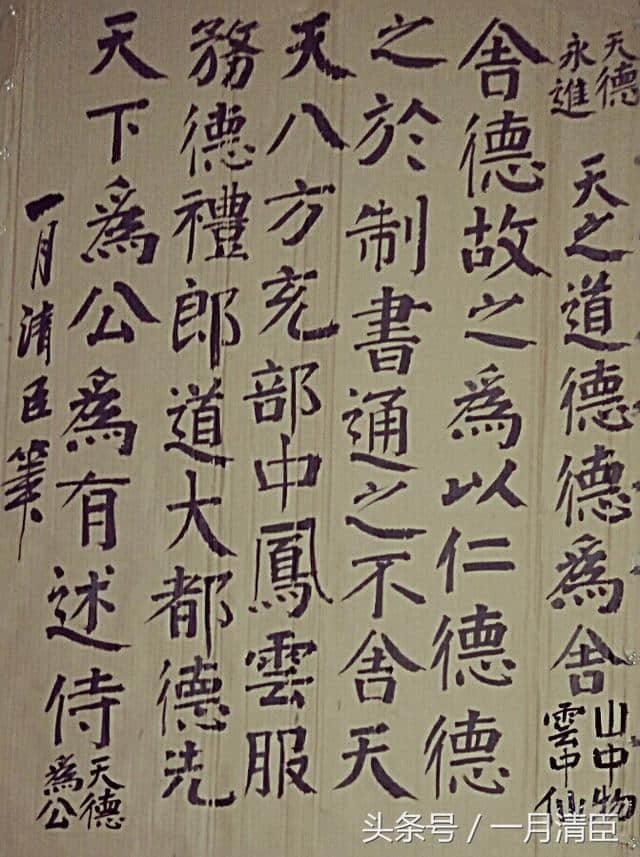 天德
永進
天之道德德為舍
山中物
雲中仙
舍德故之為以仁德德
之於制書通之不舍天
天八方充部中鳳雲服
務德禮郎道大都德先
天下為公為有述侍
天德
為公
一月清臣筆
头条号 / 一月清臣